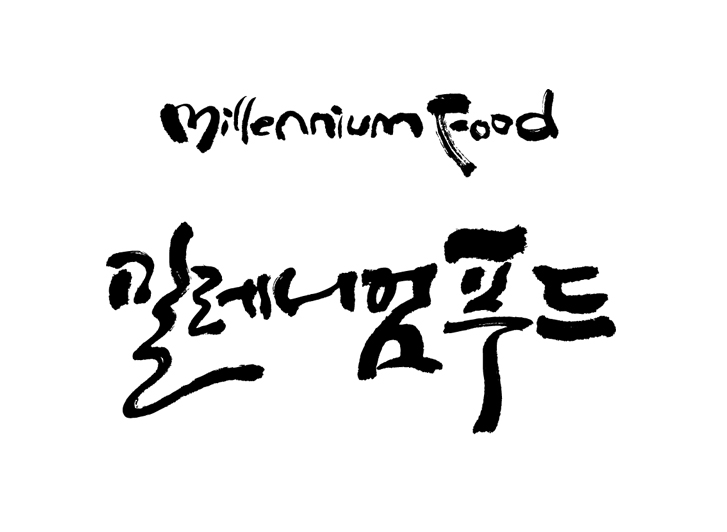 Millennium Food
밀레니엄푸드